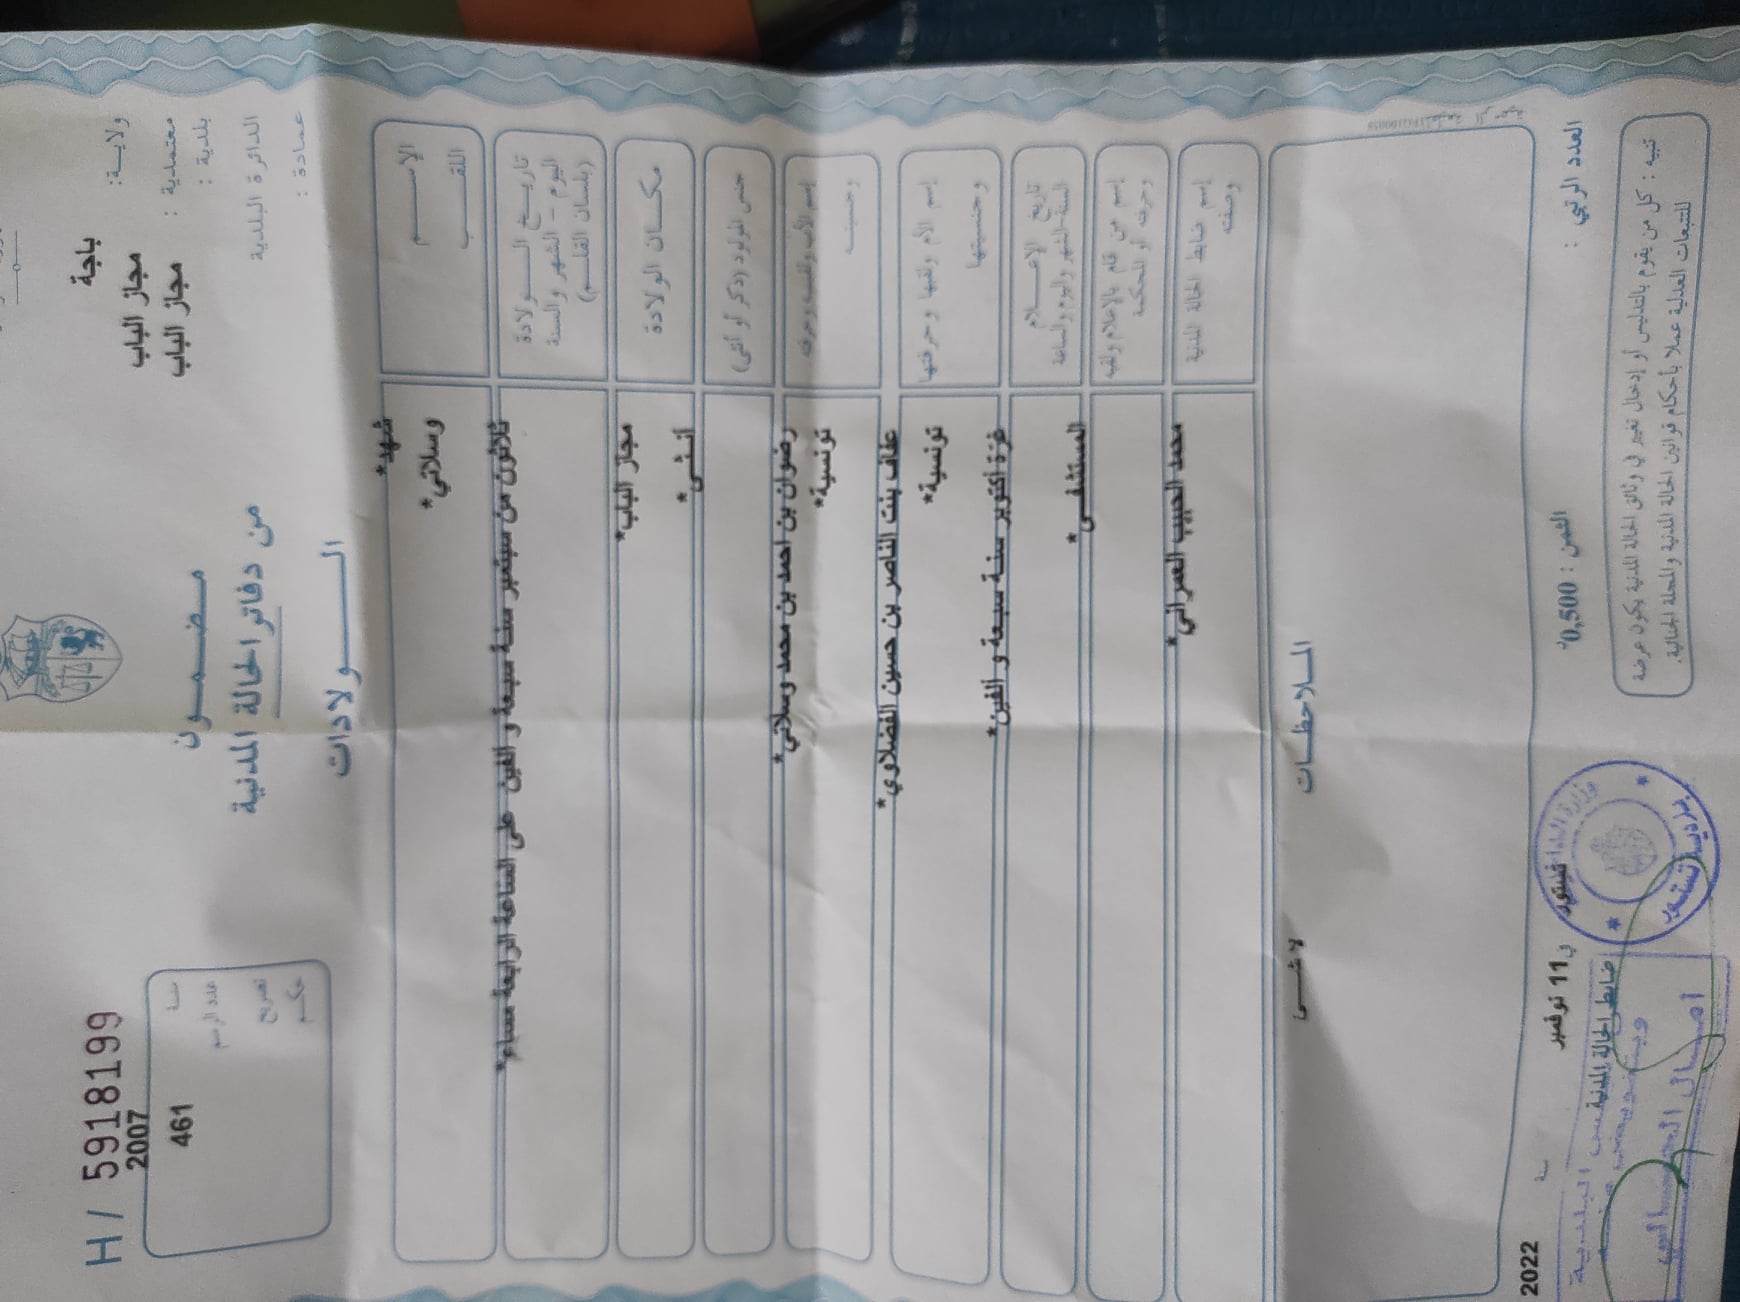 ولايــة: باجة
معتمدية : مجاز الباب
بلدية : مجاز الباب
الدائرة البلدية
عمادة :
H/ 59181199
سنة 2007
عدد الرسم 461
تصريح
حكــم
مـضـمـــون
من دفاتر الحالة المدنية
الـــــولادات
الاســـــم شهد*
اللقـــــب وسلاتي*
تاريـــخ الـــولادة
اليوم - الشهر والسنة
(بلسان القلــم)
ثلاثون من سبتمبر سنة سبعة و الفين على الساعة الرابعة مساء*
مكـــان الولادة مجاز الباب*
جنس المولود (ذكر أو أنثى) أنـثـى*
إسم الأب ولقبــه وحرفته رضوان بن احمد بن محمد وسلاتي*
وجنسيتــه تونسية*
إسم الأم ولقبها وحرفتها عفاف بنت الناصر بن حسين الفضلاوي*
وجنسيتهــا تونسية*
تاريخ الإعــــلام
السنة والشهر واليوم والساعة
غرة أكتوبر سنة سبعة و الفين*
إسم من قام بالإعلام ولقبه
وحرفته أو المحكمة
المستشفـى*
إسم ضابط الحالة المدنية
وصفته
محمد الحبيب العمراني*
الملاحظـــات
لا شــيء
العدد الرتبي :
الثمن : 0,500
في 11 نوفمبر سنة 2022
ضابط الحالة المدنية
تنبيه : كل من يقوم بالتدليس أو إدخال تغيير في وثائق الحالة المدنية يكون عرضة
للتتبعات العدلية عملا بأحكام قوانين الحالة المدنية والمجلة الجنائية.
وزارة الداخلية